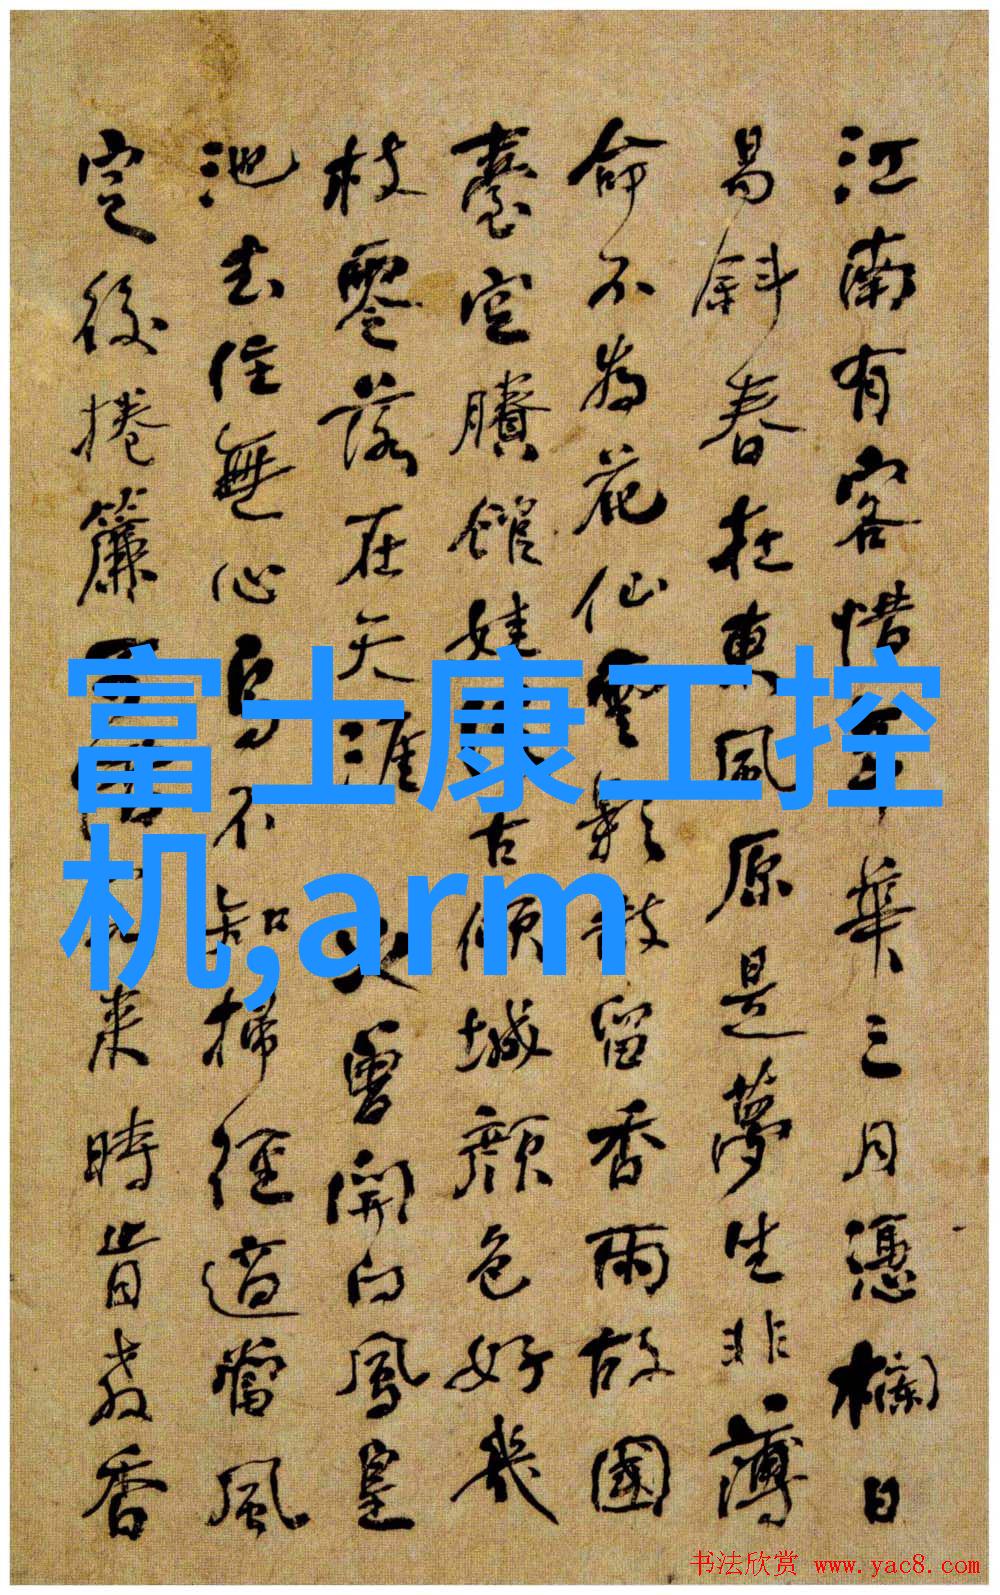 江南有客惜年華三月憑欄日
易斜春在東風原是夢生非薄
命不為花仙雲影散留香雨故國
臺空賸館娃古傾城顏色好幾
枝零落在天涯曾開向鳳皇
池去住無心鳥不知掃徑適當風
定後捲簾來時肯教香
富士康工控
机,arm
书法欣赏 www.yac8.com